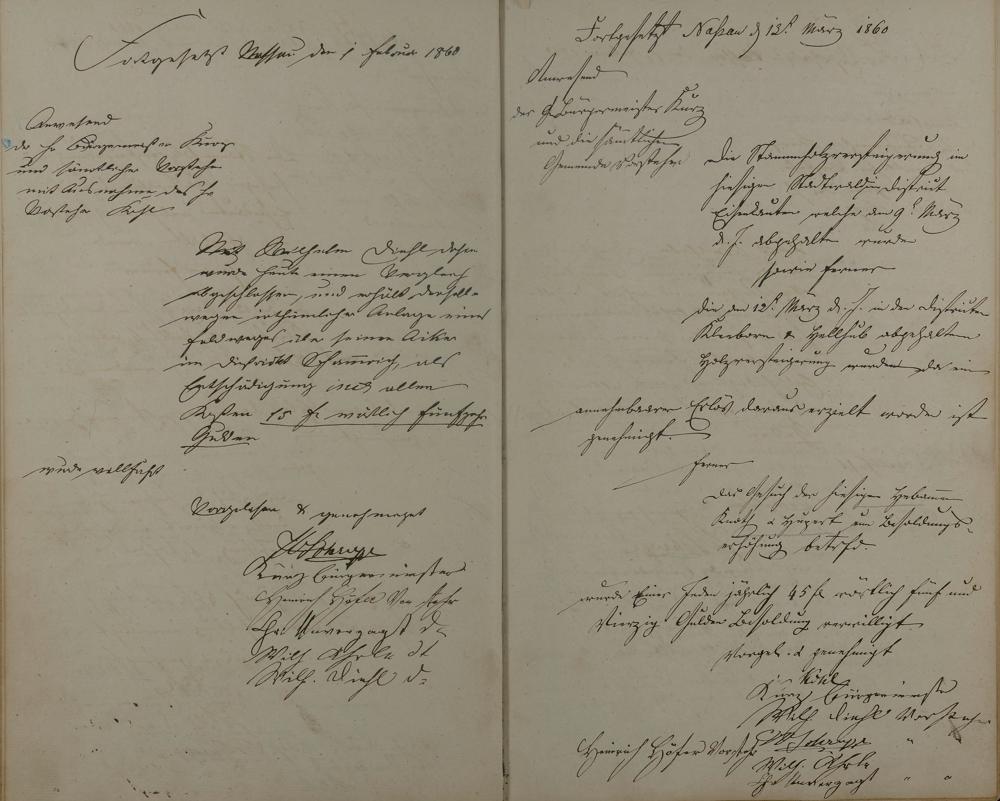 Fortgesetzt Nassau den 1 Februar 1860
Anwesend
der Hr Bürgermeister Kurz
und sämtliche Vorsteher
mit Ausnahme des Hr
Vorsteher Kohl
Mit Wilhelm Diehl dahier
wurde heute einen Vergleich
abgeschlossen, und erhält derselbe
wegen irthümlicher Anlage eines
Feldweges über seinen Acker
im Districkt als
Entschädigung incl allen
Kosten 15 f. wörtlich fünfzehn
Gulden
wurde willfahrt
Vorgelesen & genehmiget
Kurz Bürgermeister
Heinrich Höfer Vorsteher
Chr Unverzagt d
Wilh dt
Wilh. Diehl d
Fortgesetzt Nassau d 12t März 1860
Anwesend
der H Bürgermeister Kurz
und die sämtlichen
Gemeinde Vorsteher
Die Stammholzversteigerung im
hiesigen Stadtwald District
Eisenkauten welche am 9t März
d. J. abgehalten wurde
sowie ferner
die am 12t März d. J. in den Districten
& abgehaltene
Holzversteigerung wurden da ein
annehmbarer Erlös daraus erzielt worden ist
genehmigt.
ferner
Das Gesuch der hiesigen Hebammen
& um Besoldungs-
erhöhung betrfd.
wurde Einer Jeden jährlich 45 fl wörtlich fünf und
Vierzig Gulden Besoldung verwilligt
Vorgel. & genehmigt
Kohl
Kurz Bürgermeister
Wilh Diehl Vorsteher
Heinrich Höfer Vorsteher "
Wilh.
Chr Unverzagt " "